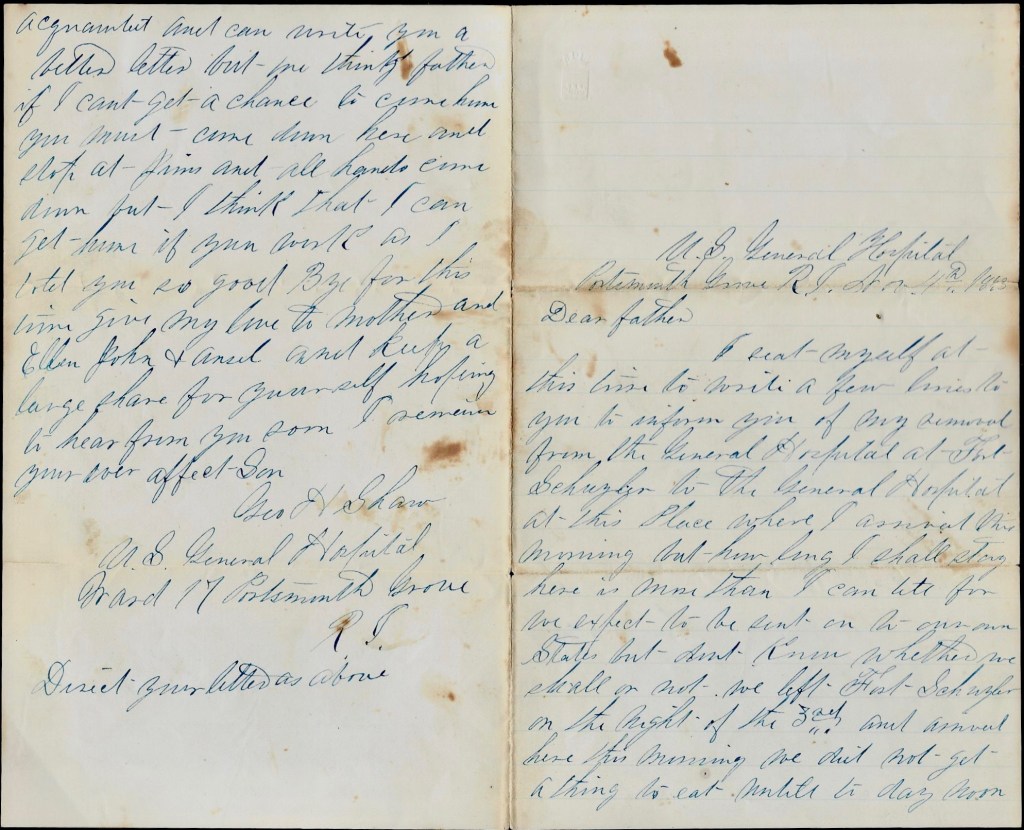 acquaintet and can write you a
better letter but me thinks father
if I cant get a chance to come home
you must come down here and
stop at Jims and all hands come
down but I think that I can
get home if you work as I
told you so good Bye for this
time give my love to Mother and
Ellen John & ansel and keep a
large share for yourself hoping
to hear from you soon I remain
your ever affect Son
Geo H Shaw
U. S. General Hospital
Ward 17 Portsmouth Grove
R I.
Direct your letter as above
U. S. General Hospital
Portsmouth Grove R. I. Nov 4th
Dear father
I seat myself at
this time to write a few lines to
you to inform you of my removal
from the General Hospital at Fort
Schuyler to the General Hospital
at this Place where I arrived this
morning but how long I shall stay
here is more than I can tell for
we expect to be sent on to our own
States but dont Know whether we
shall or not. we left Fort Schuyler
on the night of the 3rd and arrived
here this morning we did not get
a thing to eat untill to day noon